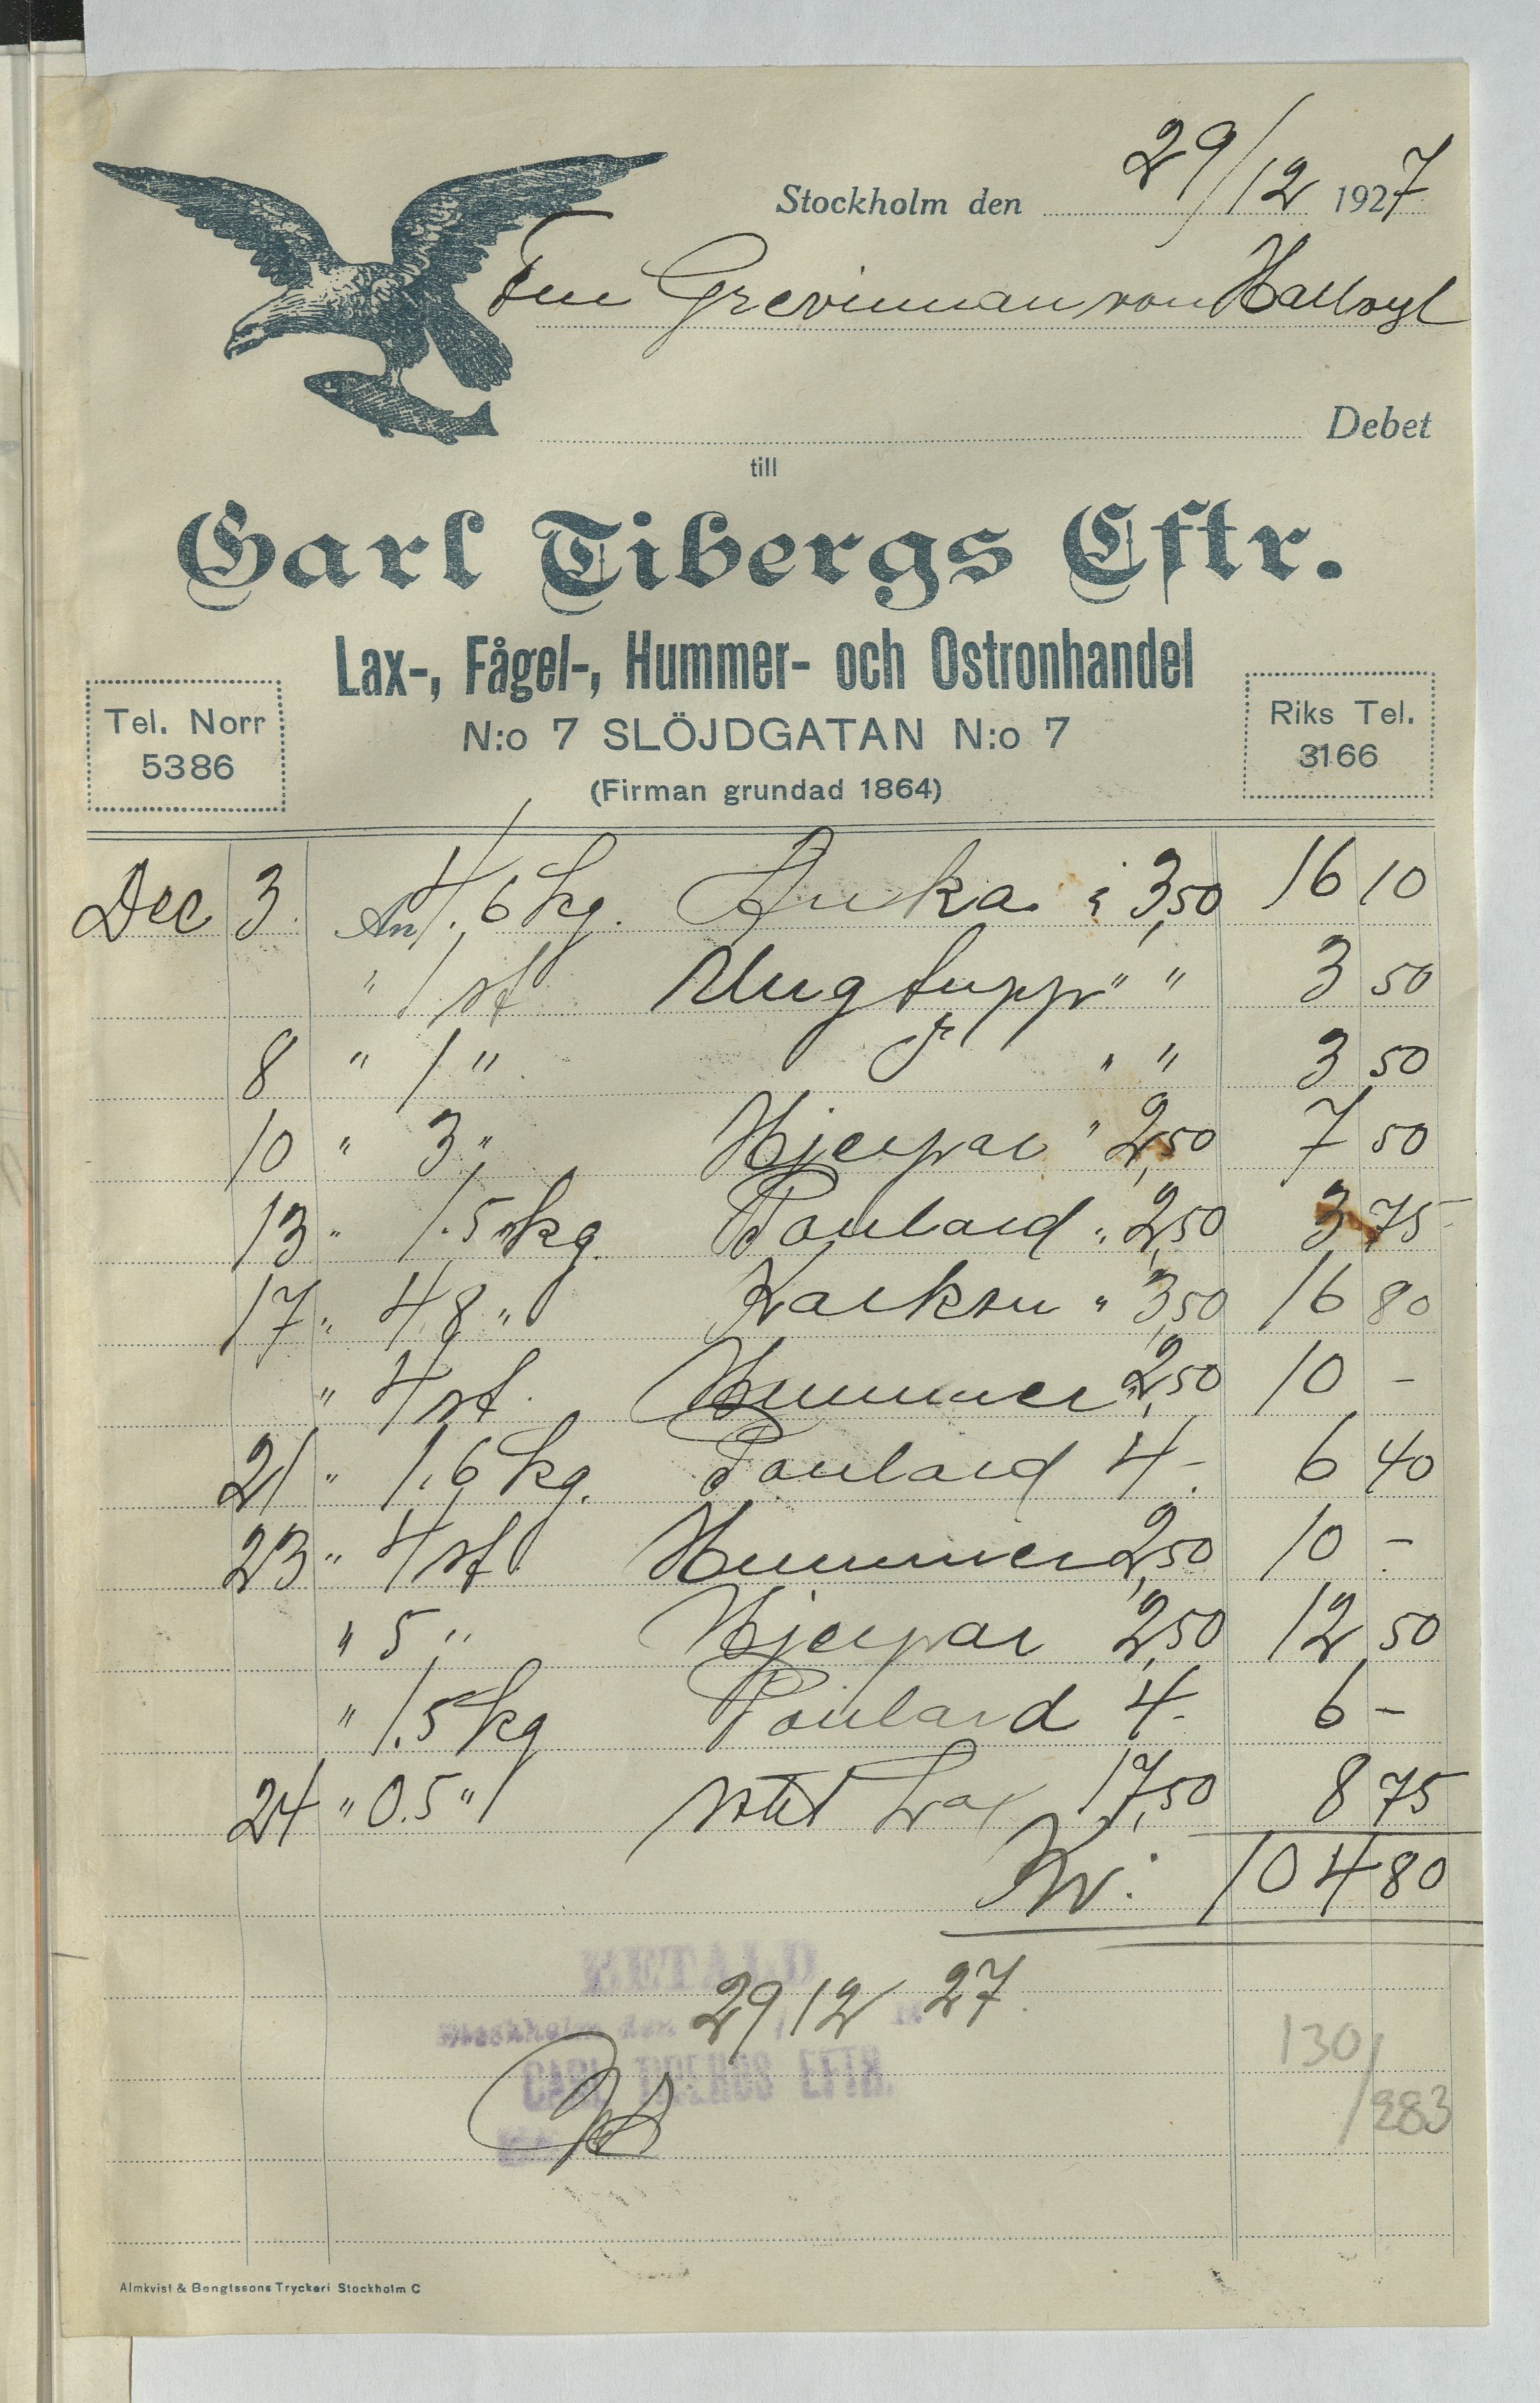 Stockholm den 29/12 1927
Fru Grevinnan von Hallwyl
Debet
till
Carl Tibergs Eftr.
Lax-, Fågel-, Hummer- och Ostronhandel
Tel. Norr 5386
N:o 7 SLÖJDGATAN N:o 7
Riks Tel. 3166
(Firman grundad 1864)
Dec 3 An 4.6 kg. Anka à 3,50 16 10
" 1 st Ungtupp " " 3 50
8 " 1 " " " 3 50
10 " 3 " Hjerpar " 2,50 7 50
13 " 1.5 kg. Poulard " 2,50 3 75
17 " 4,8 " Kalkon " 3,50 16 80
" 4 st. Hummer " 2,50 10 -
21 " 1.6 kg. Poulard 4- 6 40
23 " 4 st. Hummer 2,50 10 -
" 5 " Hjerpar 2,50 12 50
" 1.5 kg Poulard 4- 6 -
24 " 0.5 " rökt Lax 17,50 8 75
Kr: 104 80
BETALD
Stockholm den 29/12 27
CARL TIBERGS EFTR.
130/283
Almkvist & Bengtssons Tryckeri Stockholm C